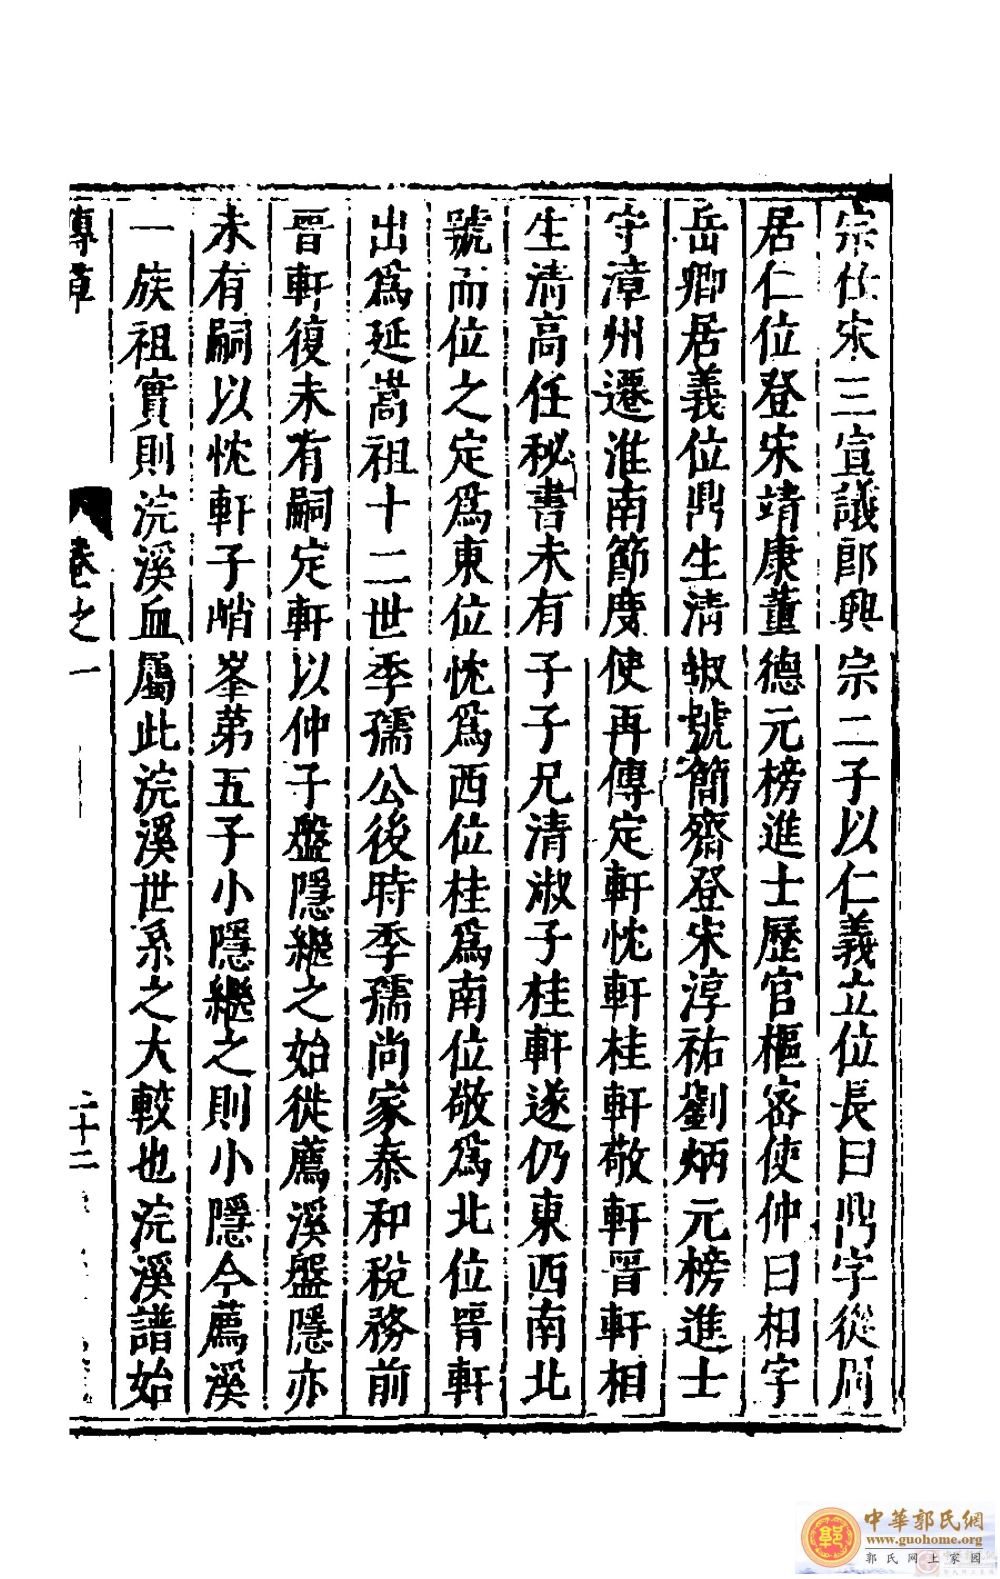 宗仕宋三宣議郎興宗二子以仁義立位長曰鼎字從周
居仁位登宋靖康董德元榜進士歷官樞密使仲曰相字
岳卿居義位鼎生清淑號簡齋登宋淳祐劉炳元榜進士
守漳州遷淮南節度使再傳定軒忱軒桂軒敬軒晉軒相
生清高任秘書未有子子兄清淑子桂軒遂仍東西南北
號而位之定為東位忱為西位桂為南位敬為北位晉軒
出為延嵩祖十二世季孺公後時季孺尚家泰和稅務前
晉軒復未有嗣定軒以仲子盤隱繼之始徙薦溪盤隱亦
未有嗣以忱軒子峭峯第五子小隱繼之則小隱今薦溪
一族祖實則浣溪血屬此浣溪世系之大較也浣溪譜始
卷之一
二十二
中華郭氏網
www.guohome.org
郭氏网上家园